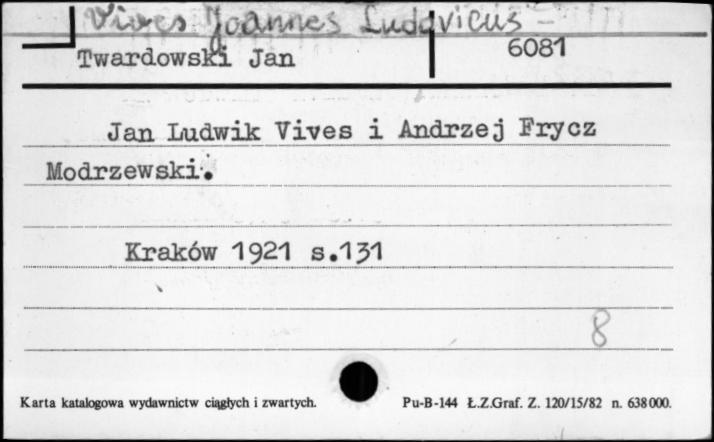 Vives Joannes Ludovicus -
Twardowski Jan 6081
Jan Ludwik Vives i Andrzej Frycz
Modrzewski.
Kraków 1921 s.131
8
Karta katalogowa wydawnictw ciągłych i zwartych. Pu-B-144 Ł.Z.Graf. Z. 120/15/82 n. 638000.